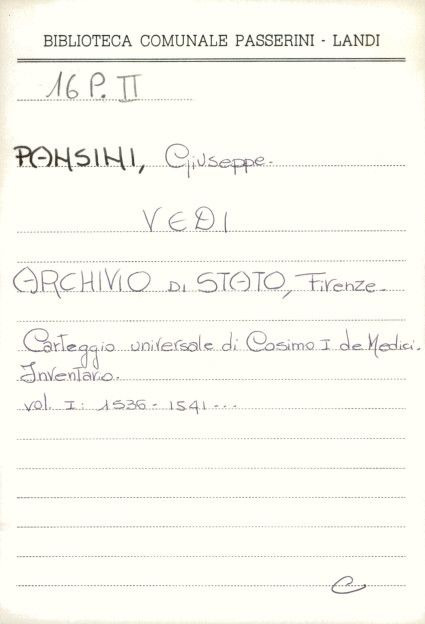 BIBLIOTECA COMUNALE PASSERINI - LANDI
16 P. II
PANSINI, Giuseppe.
VEDI
ARCHIVIO DI STATO, Firenze.
Carteggio universale di Cosimo I de Medici.
Inventario.
vol. I: 1536 - 1541 ---
C